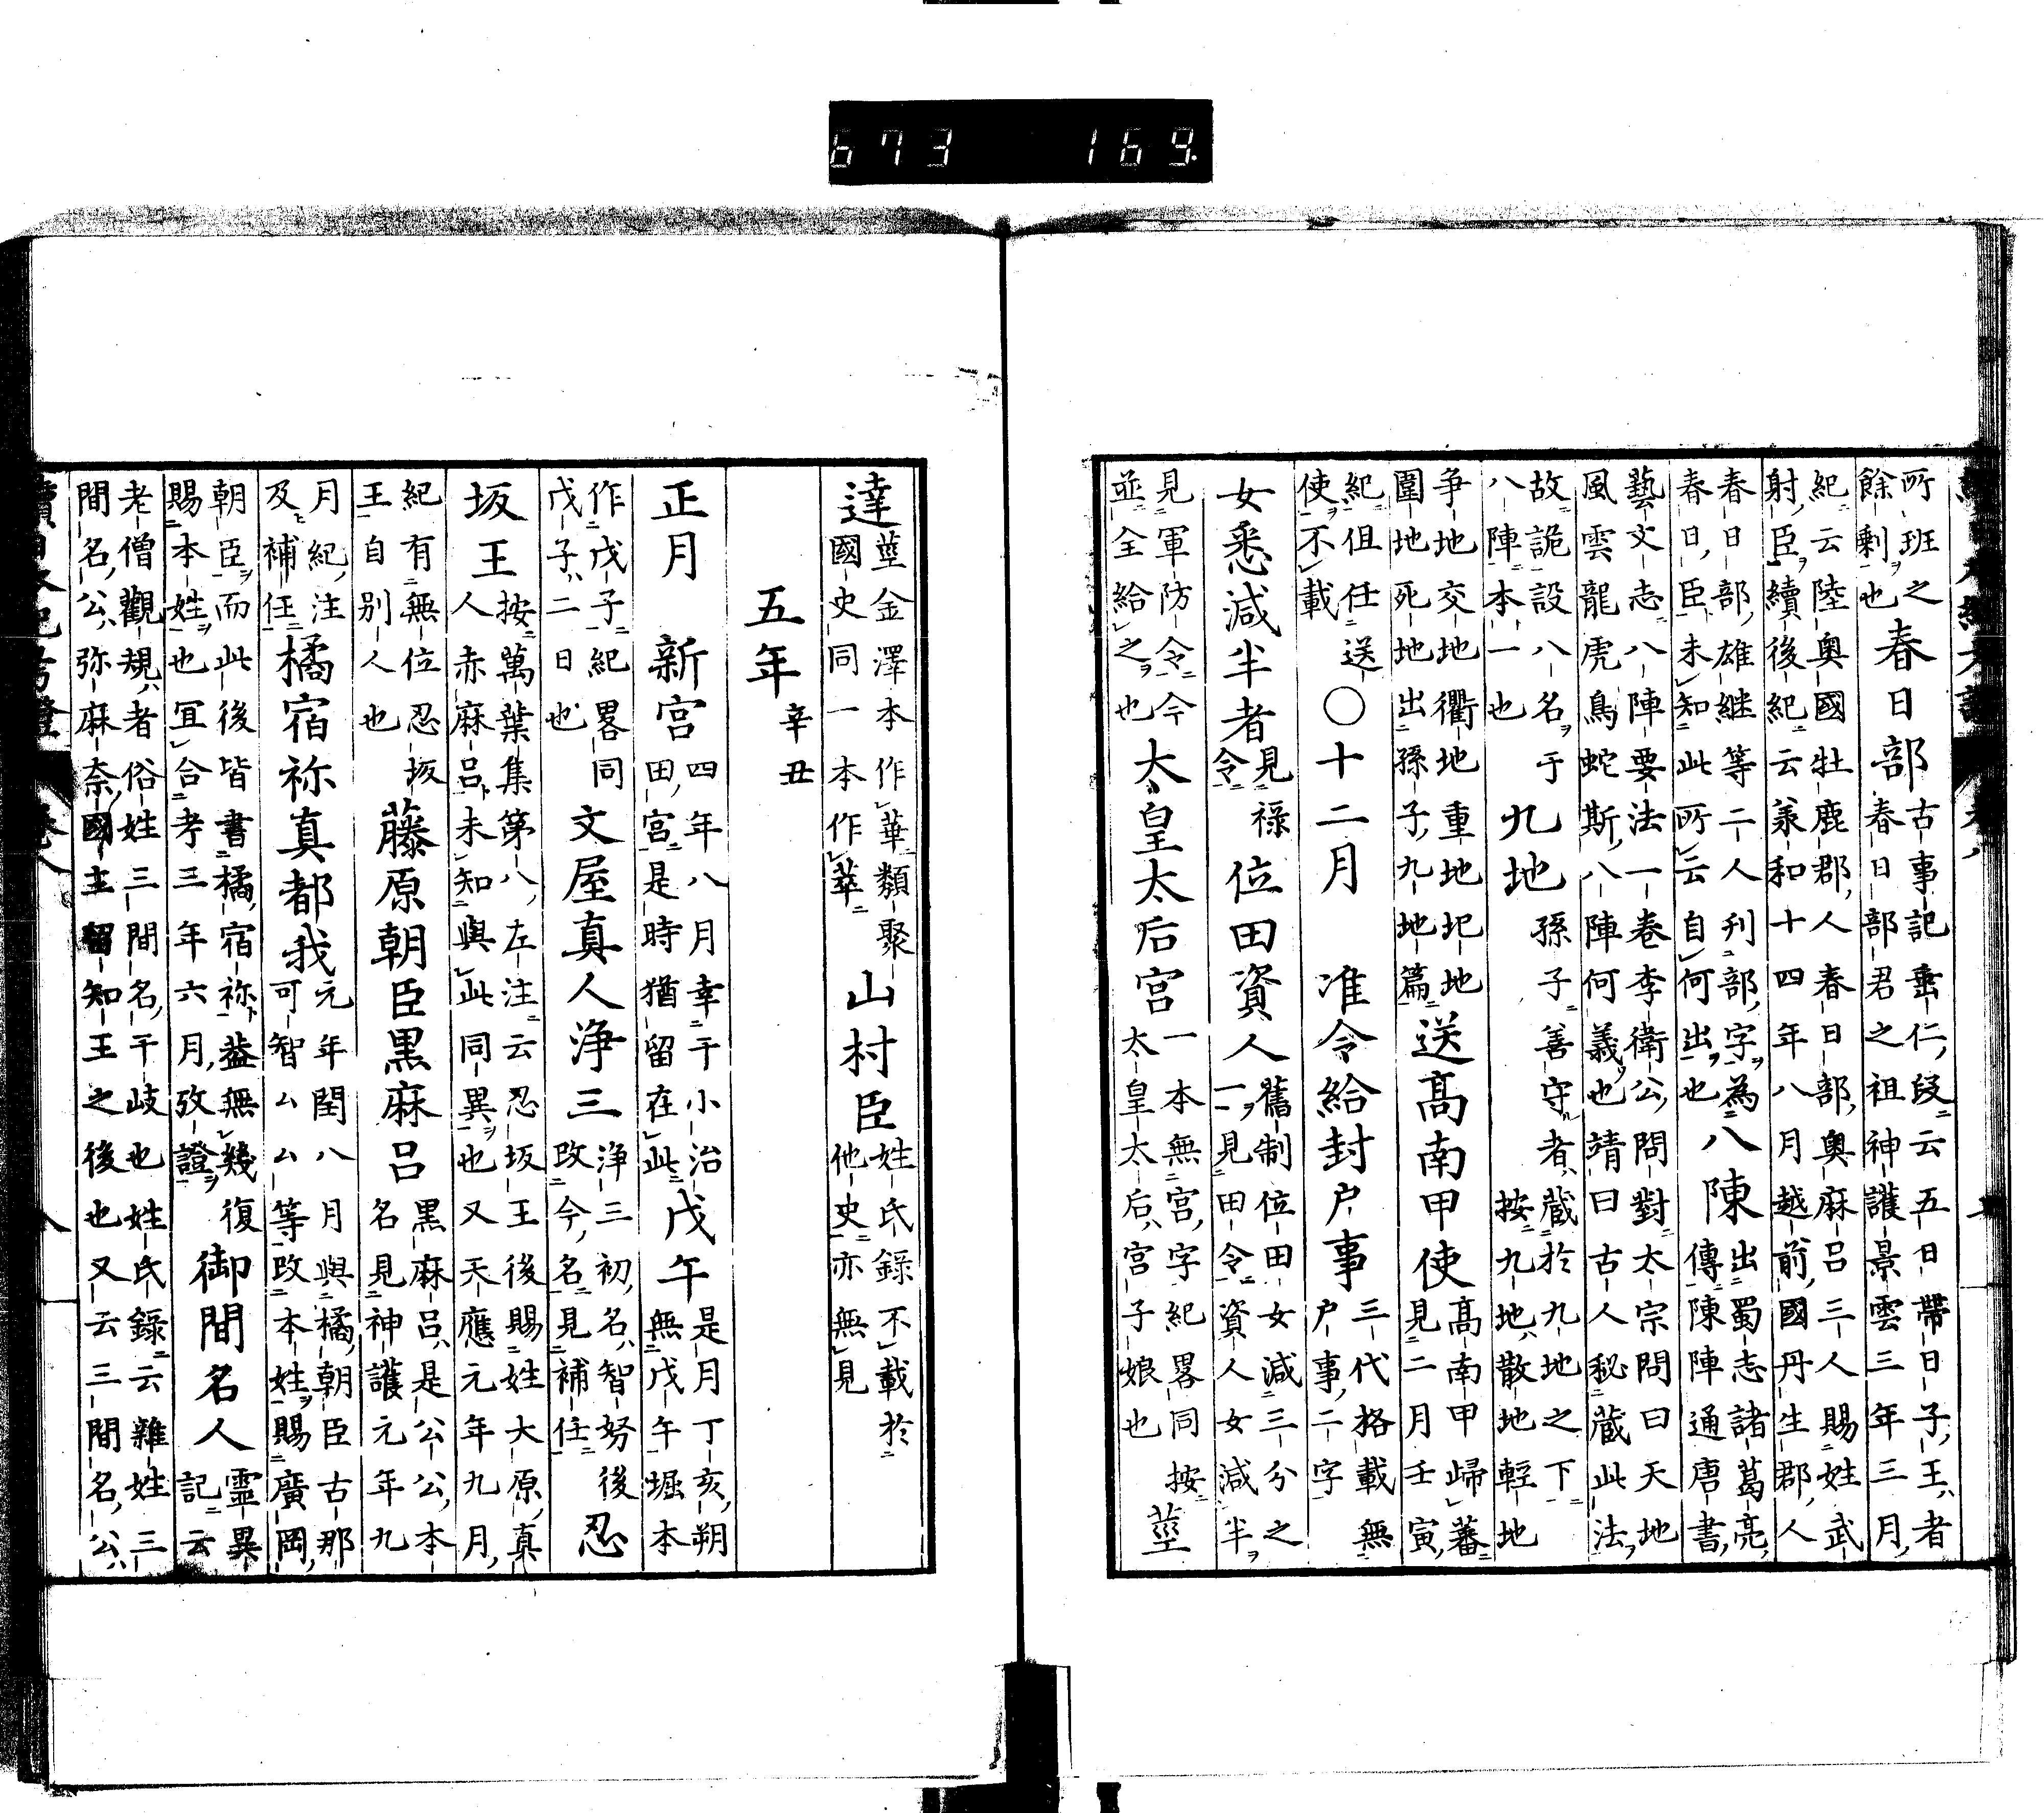 所班之
餘剰也
春日部
古事記垂仁段云五日帶日子王者
春日部君之祖神護景雲三年三月
紀云陸奧國牡鹿郡人春日部奧麻呂三人賜姓武
射臣續後紀云承和十四年八月越前國丹生郡人
春日部雄継等二人刋部字為
春日臣未知此所云自何出也
八陳
出蜀志諸葛亮
傳陳陣通唐書
藝文志八陣要法一卷李衛公問對太宗問曰天地
風雲龍虎鳥蛇斯八陣何義也靖曰古人秘蔵此法
故詭設八名于
八陣本一也
九地
孫子善守者蔵於九地之下
按九地散地輕地
争地交地衢地重地圯地
圍地死地出孫子九地篇
送髙南甲使
髙南甲歸蕃
見二月壬寅
紀但任送
使不載
○十二月 准令給封户事
三代格載無
户事二字
女悉減半者
見禄
令
位田資人
舊制位田女減三分之
一見田令資人女減半
見軍防令今
並全給之也
太皇太后宮
一本無宮字紀畧同按
太皇太后宮子娘也
莖
達
莖金澤本作華類聚
國史同一本作莖
山村臣
姓氏錄不載於
他史亦無見
五年
辛丑
正月 新宮
四年八月幸于小治
田宮是時猶留在此
戊午
是月丁亥朔
無戊午堀本
作戊子紀畧同
戊子二日也
文屋真人浄三
浄三初名智努後
改今名見補任
忍
坂王
按萬葉集第八左注云忍坂王後賜姓大原真
人赤麻呂未知與此同異也又天應元年九月
紀有無位忍坂
王自别人也
藤原朝臣黒麻呂
黒麻呂是公公本
名見神護元年九
月紀注
及補任
橘宿祢真都我
元年閏八月與橘朝臣古那
可智厶厶等改本姓賜廣岡
朝臣而此後皆書橘宿祢葢無幾復
賜本姓也冝合考三年六月攷證
御間名人
霊異
記云
老僧觀規者俗姓三間名干岐也姓氏錄云雜姓三
間名公弥麻奈國主留知王之後也又云三間名公